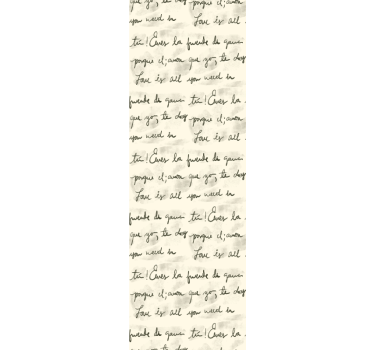 you need in Love is all
tú! Eres la fuente de
porque el; amor que yo, te doy
Love is all you need in
fuente de tú! Eres la
que yo, te doy porque el; amor
you need in Love is all
tú! Eres la fuente de
porque el; amor que yo, te doy
Love is all you need in
fuente de tú! Eres la
que yo, te doy porque el; amor
you need in Love is all
tú! Eres la fuente de
porque el; amor que yo, te doy
Love is all you need in
fuente de tú! Eres la